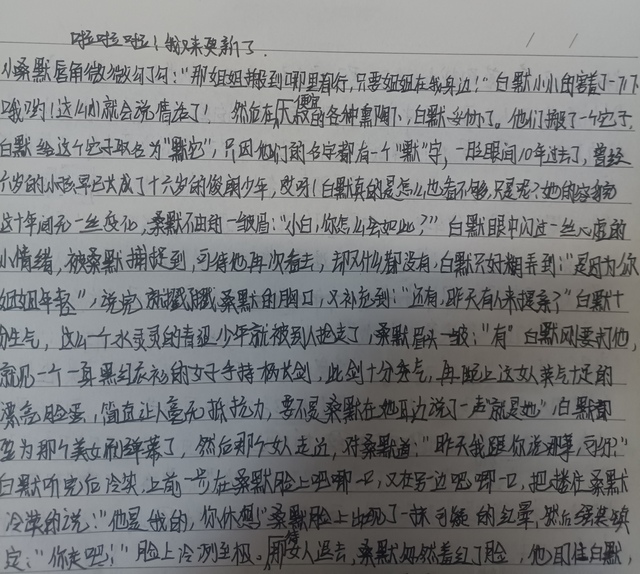 啦啦啦！我又来更新了.
小桑默唇角微微勾了勾："那姐姐搬到哪里都行，只要姐姐在我身边！"白默小小的害羞了一下下
哦哟！这么小就会说情话了！ 然后在 的各种熏陶下，白默妥协了。他们搬了一个宅子，
白默给这个宅子取名为"默宅"，只因他们的名字都有一个"默"字，一眨眼间10年过去了，曾经
六岁的小孩早已长成了十六岁的俊朗少年，哎呀！白默真的是怎么也看不够，只是呢？她的容貌
这十年间无一丝变化，桑默不由的一皱眉："小白，你怎么会如此？"白默眼中闪过一丝心虚的
小情绪，被桑默捕捉到，可待他再次看去，却又什么都没有，白默只好糊弄到："是因为你
姐姐年轻"，说完 戳戳桑默的胸口，又补充到："还有，昨天有人来提亲了"白默十
分生气，这么一个水灵灵的青涩少年就被别人抢走了，桑默眉头一皱："有"白默刚要打他，
就见一个一身黑红衣衫的女子手持一柄长剑，此剑十分秀气，再配上这女英气十足的
漂亮脸蛋，简直让人毫无抵抗力，要不是桑默在她耳边说了一声"就是她"，白默都
要为那个美女 了，然后那个女人走近，对桑默道："昨天我跟你说那事，可行？"
白默听完后冷笑，上前一步在桑默脸上吧唧一口，又在另一边吧唧一口，把 住桑默
冷淡的说："他是我的，你休想"桑默脸上出现了一抹可疑的红晕，然后强装镇
定："你走吧；"脸上冷冽至极。那女人退去，桑默忽然羞红了脸，他 住白默，